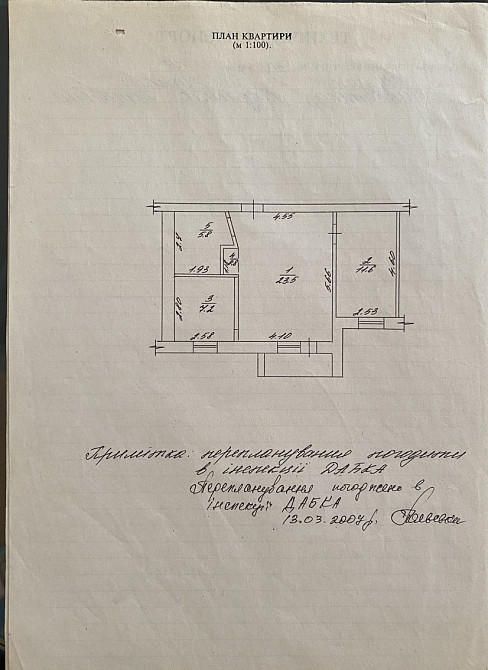 ПЛАН КВАРТИРИ
(м 1:100).
4.55
5
5.8
2.4
1.93
1
23.5
5.66
2
11.6
4.60
3
7.2
2.10
2.53
2.58
4.10
Примітка: перепланування погодити
в інспекції ДАБКА
Перепланування погоджено в
інспекції ДАБКА
13.03.2007р.